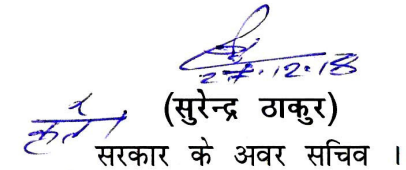 27.12.18
(सुरेन्द्र ठाकुर)
कृते
सरकार के अवर सचिव ।